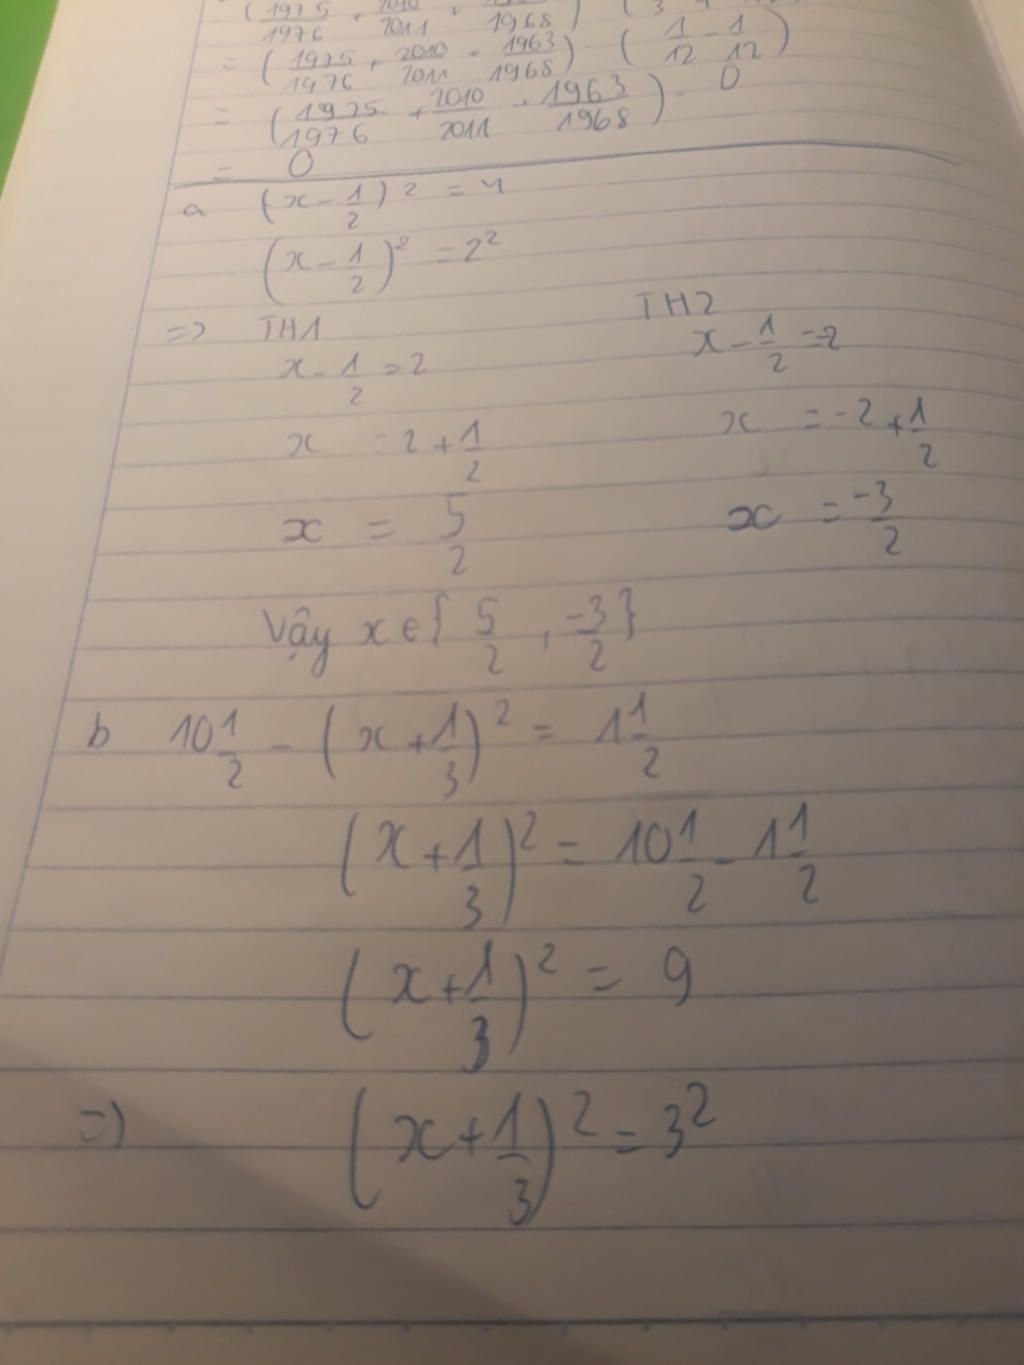 (1975/1976 + 2010/2011 + /1968) (
= (1975/1976 + 2010/2011 + 1963/1968) · (1/12 - 1/12)
= (1975/1976 + 2010/2011 + 1963/1968) · 0
= 0
a (x - 1/2)² = 4
(x - 1/2)² = 2²
=> TH1 TH2
x - 1/2 = 2 x - 1/2 = -2
x = 2 + 1/2 x = -2 + 1/2
x = 5/2 x = -3/2
Vậy x ∈ { 5/2 , -3/2 }
b 10 1/2 - (x + 1/3)² = 1 1/2
(x + 1/3)² = 10 1/2 - 1 1/2
(x + 1/3)² = 9
=> (x + 1/3)² = 3²